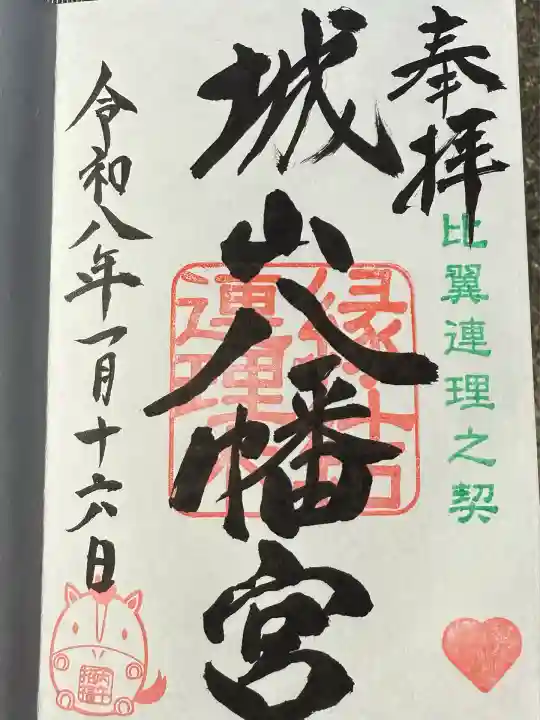 奉拝
比翼連理之契
城山八幡宮
縁結
連理木
令和八年一月十六日
丙午
招福